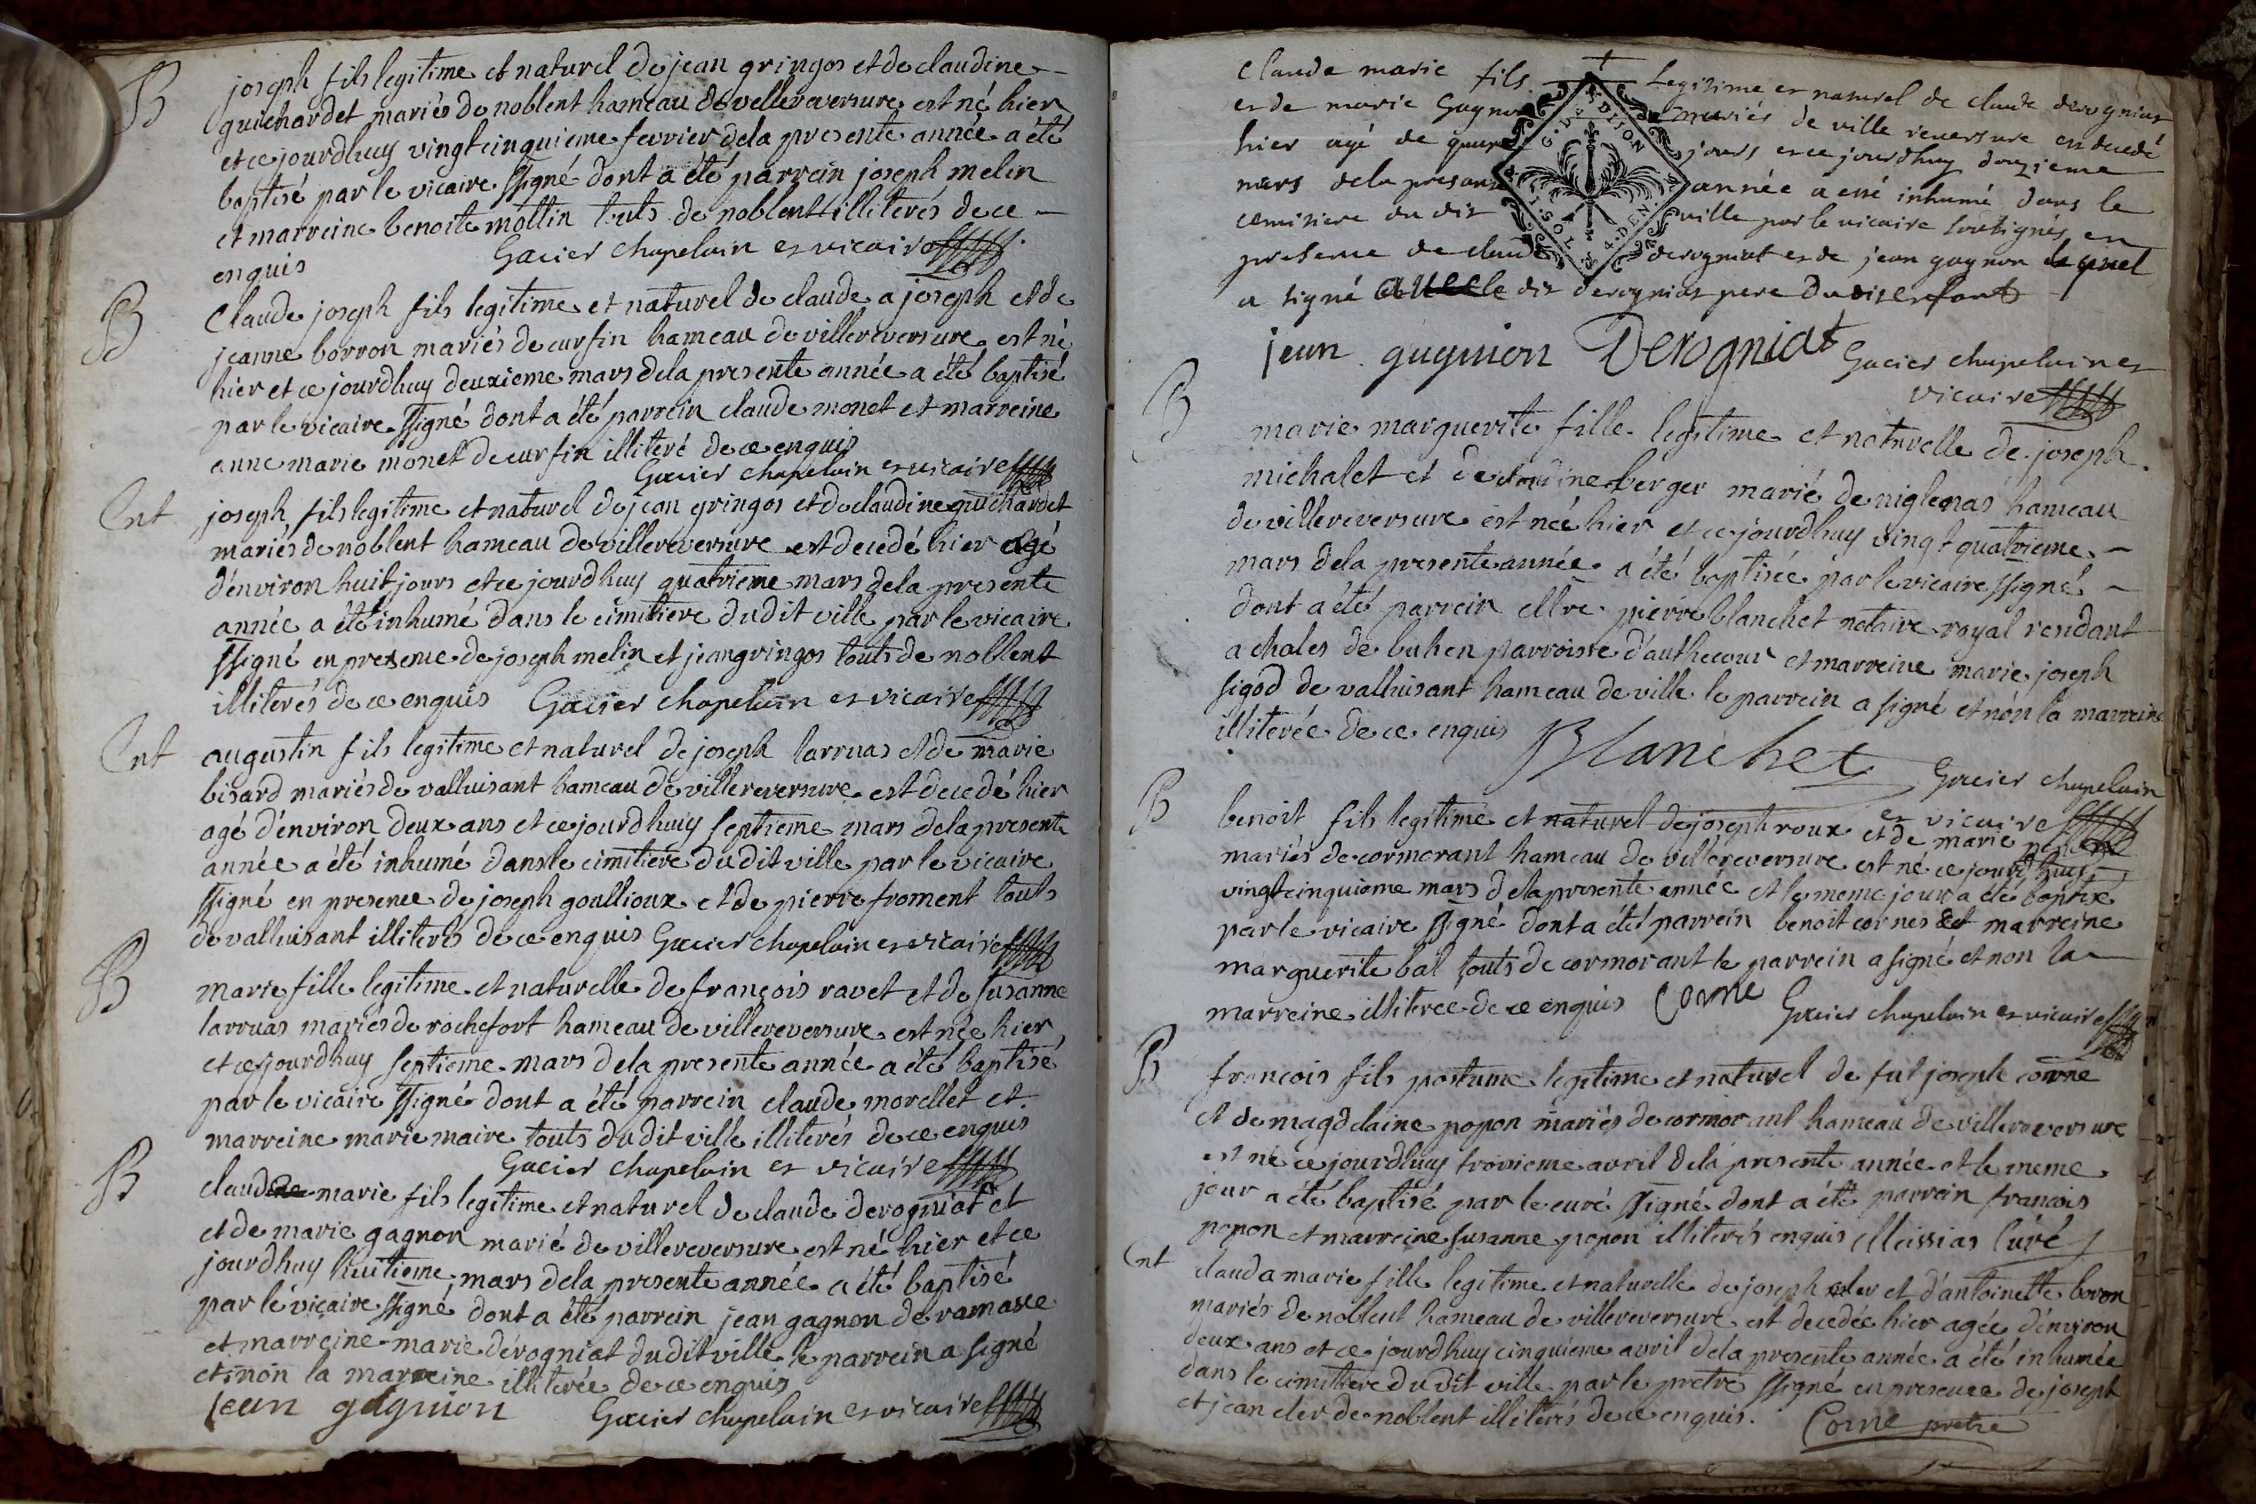 B
joseph fils legitime et naturel de jean gringos et de claudine
guichardet mariés de noblent hameau de villereversure est né hier
et ce jourdhuy vingt cinquieme fevrier dela presente année a été
baptisé par le vicaire ssigné dont a été parrein joseph melin
et marreine benoite mollin touts de noblent illiterés de ce
enquis Gacier chapelain et vicaire
B
Claude joseph fils legitime et naturel de claude a joseph et de
jeanne borron mariés de curfin hameau de villereversure est né
hier et ce jourdhuy deuxieme mars dela presente année a été baptisé
par le vicaire ssigné dont a été parrein claude monet et marreine
anne marie monet de curfin illiteré de ce enquis
Gacier chapelain et vicaire
Ent
joseph fils legitime et naturel de jean gringos et de claudine guichardet
mariés de noblent hameau de villereversure est decedé hier agé
d'environ huit jours et ce jourdhuy quatrieme mars dela presente
année a été inhumé dans le cimitiere dudit ville par le vicaire
ssigné en presence de joseph melin et jean gringos touts de noblent
illiterés de ce enquis Gacier chapelain et vicaire
Ent
augustin fils legitime et naturel de joseph larruas et de marie
bisard mariés de valluisant hameau de villereversure est decedé hier
agé d'environ deux ans et ce jourdhuy septieme mars dela presente
année a été inhumé dans le cimitiere dudit ville par le vicaire
ssigné en presence de joseph goullioux et de pierre froment touts
de valluisant illiterés de ce enquis Gacier chapelain et vicaire
B
marie fille legitime et naturelle de françois ravet et de susanne
larruas mariés de rochefort hameau de villereversure est née hier
et ce jourdhuy septieme mars dela presente année a été baptisé
par le vicaire ssigné dont a été parrein claude morellet et
marreine marie maire touts dudit ville illiterés de ce enquis
Gacier chapelain et vicaire
B
claude marie fils legitime et naturel de claude derogniat et
et de marie gagnon marié de villereversure est né hier et ce
jourdhuy huitieme mars dela presente année a été baptisé
par le vicaire ssigné dont a été parrein jean gagnon de ramasse
et marreine marie dérogniat dudit ville le parrein a signé
et non la marreine illiterée de ce enquis
jean gagnion Gacier chapelain et vicaire
Claude marie fils legitime et naturel de claude derogniat
et de marie Gagnon mariés de ville reversure est decedé
hier agé de quatre jours et ce jourdhuy douzieme
mars dela presante année a eté inhumé dans le
cemitiere du dit ville par le vicaire soutsignés en
presence de claude derogniat et de jean gagnon lequel
a signé avec le dit derogniat pere du dit enfant
G. DE DIJON
1. SOL 4. DEN.
jean gagnion Derogniat Gacier chapelain et
vicaire
B
marie marguerite fille legitime et naturelle de joseph
michalet et de claudine berger marié de niglenas hameau
de villereversure est née hier et ce jourdhuy vingt quatrieme
mars dela presente année a été baptisée par le vicaire ssigné
dont a été parrein Mre pierre blanchet notaire royal residant
a chales de buhen parroisse d'authecour et marreine marie joseph
sigod de valluisant hameau de ville le parrein a signé et non la marreine
illiterée de ce enquis Blanchet
Gacier chapelain
et vicaire
B
benoit fils legitime et naturel de joseph roux et de marie
mariés de cormorant hameau de villereversure est né ce jourdhuy
vingt cinquieme mars dela presente année et le meme jour a été baptisé
par le vicaire ssigné dont a été parrein benoit cornes et marreine
marguerite bal touts de cormorant le parrein a signé et non la
marreine illiterée de ce enquis Corne Gacier chapelain et vicaire
B
françois fils postume legitime et naturel de fut joseph corne
et de magdelaine popon mariés de cormorant hameau de villereversure
est né ce jourdhuy troisieme avril dela presente année et le meme
jour a été baptisé par le curé ssigné dont a été parrein francois
popon et marreine susanne popon illiterés enquis Meissias Curé
Ent
clauda marie fille legitime et naturelle de joseph cler et d'antoinette boron
mariés de noblent hameau de villereversure est decedée hier agée d'environ
deux ans et ce jourdhuy cinquieme avril dela presente année a été inhumée
dans le cimitiere dudit ville par le pretre ssigné en presence de joseph
et jean cler de noblent illiterés de ce enquis. Corne pretre